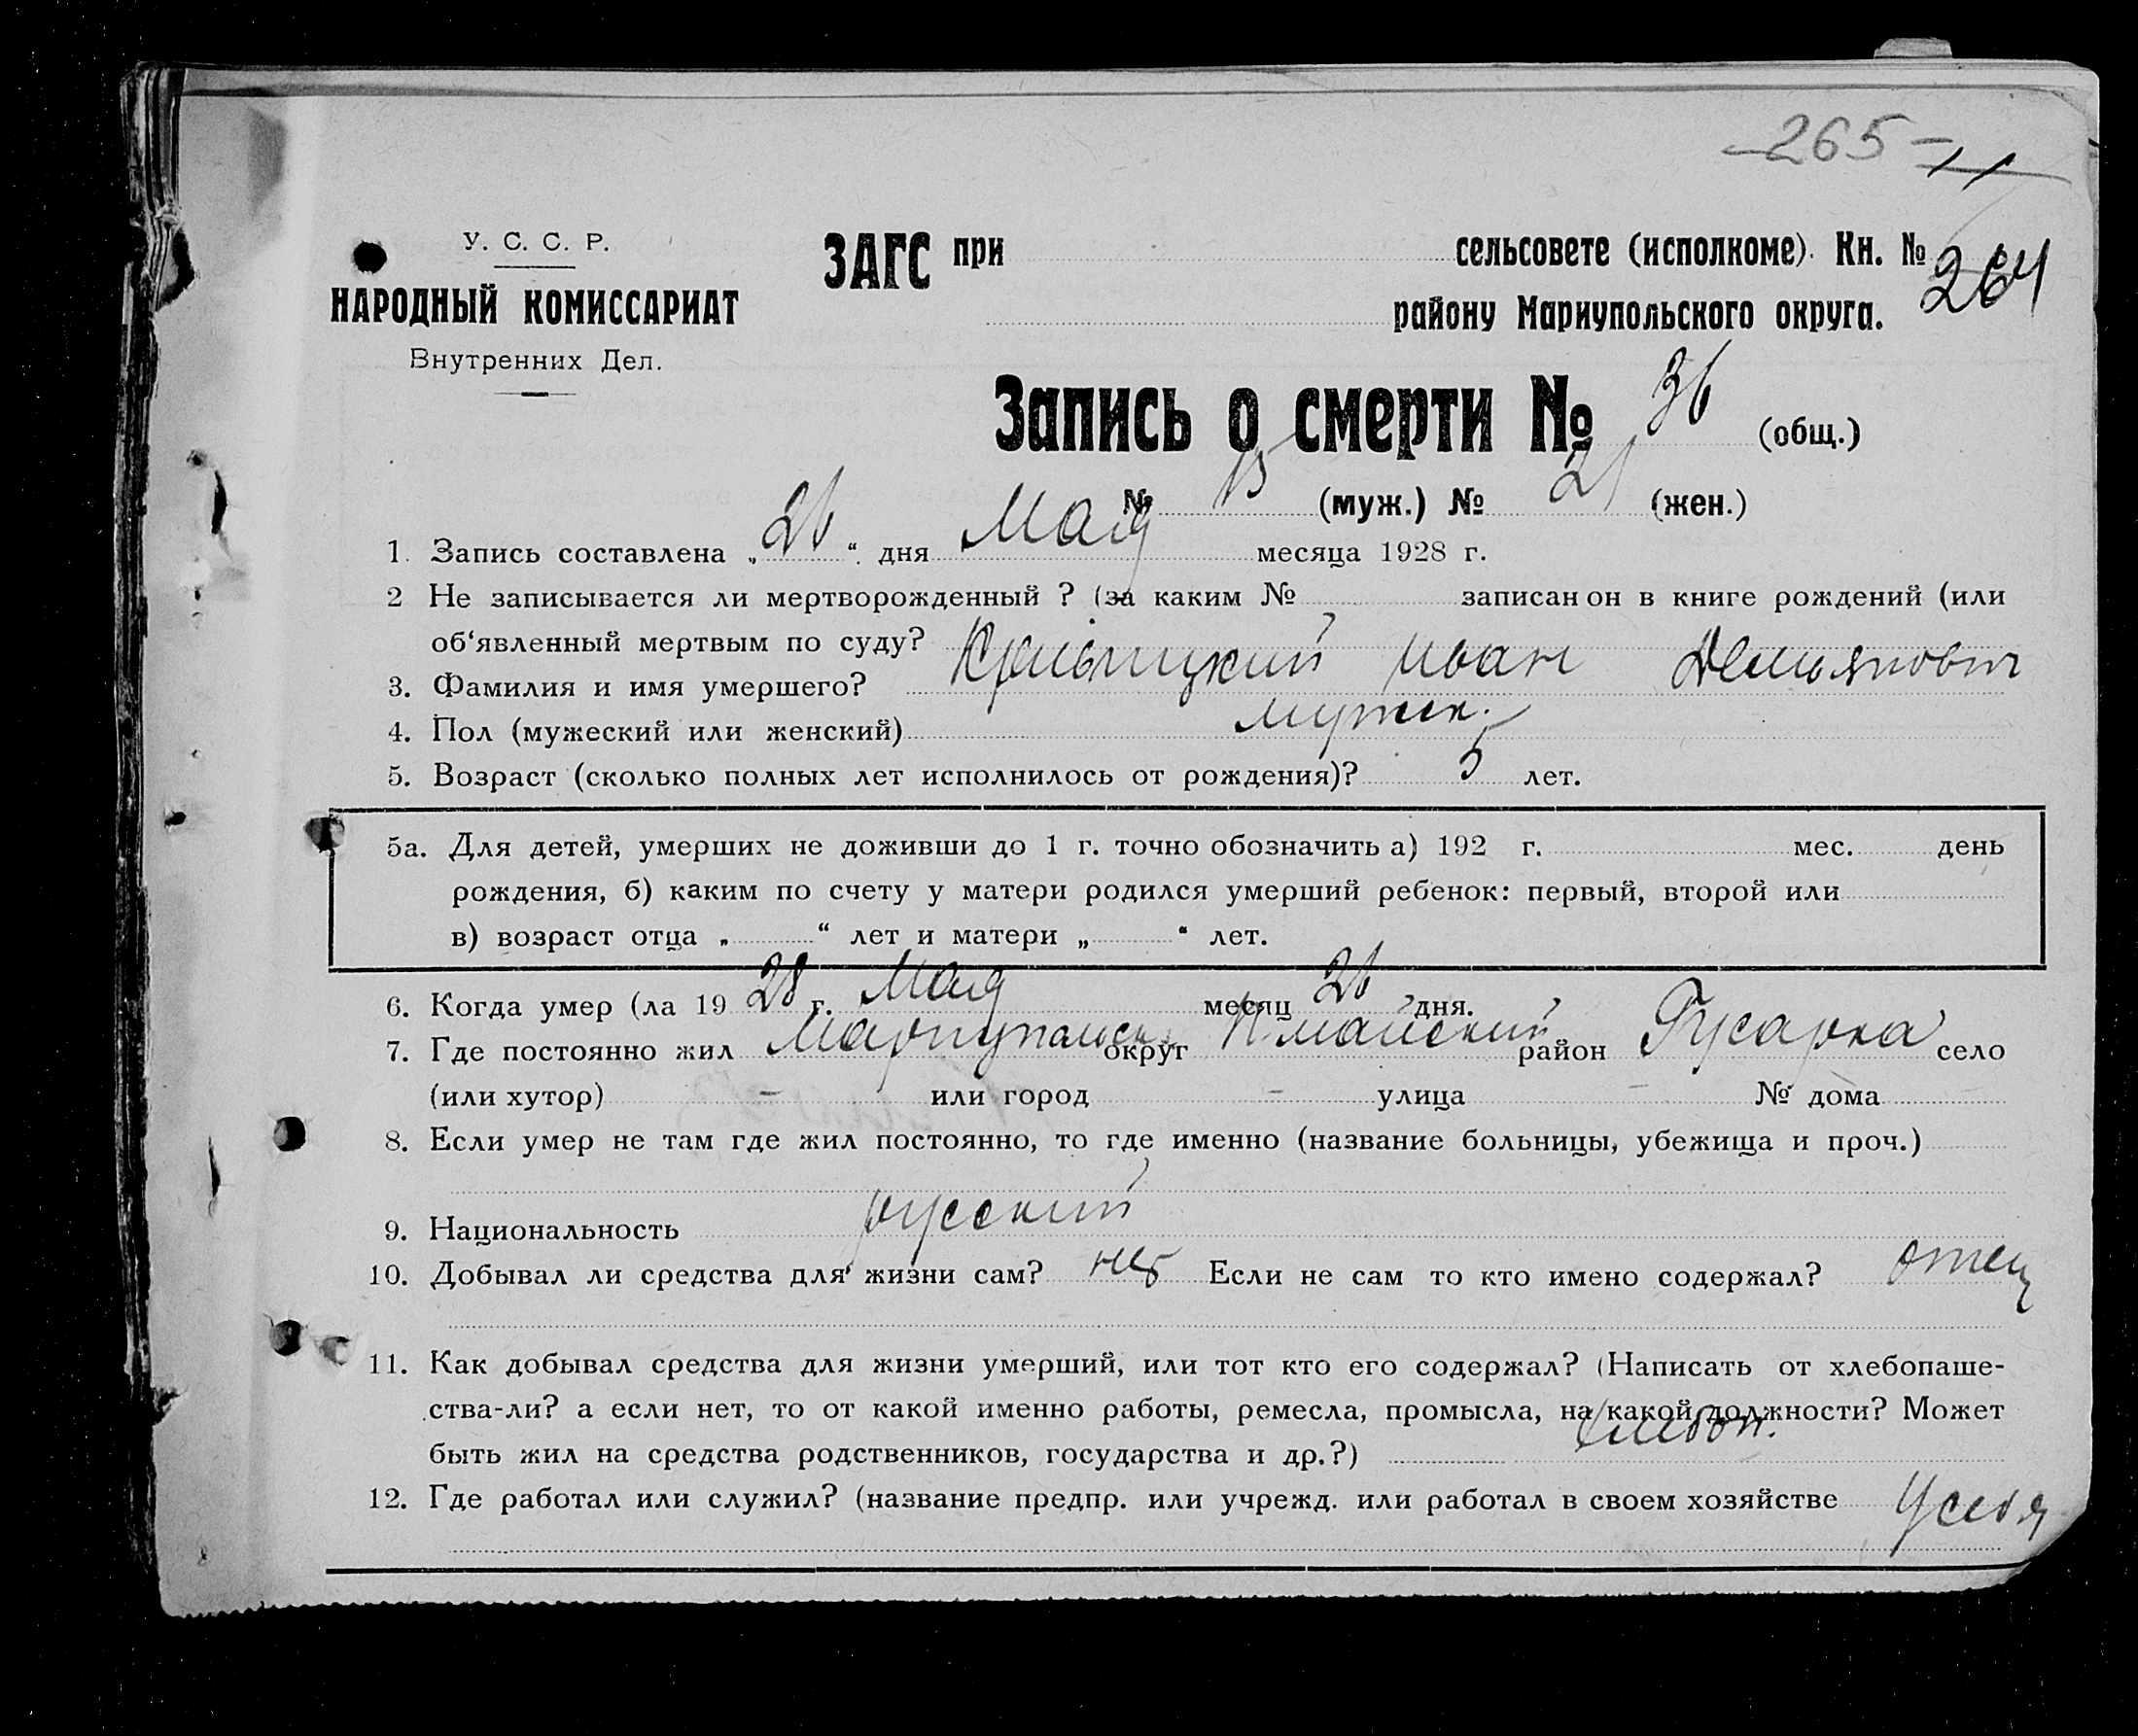 265
У. С. С. Р.
НАРОДНЫЙ КОМИССАРИАТ
Внутренних Дел.
ЗАГС при сельсовете (исполкоме). Кн. № 264
району Мариупольского округа.
Запись о смерти № 36 (общ.)
№ 15 (муж.) № 21 (жен.)
1. Запись составлена „26“ дня Мая месяца 1928 г.
2 Не записывается ли мертворожденный ? (за каким № записан он в книге рождений (или
об‘явленный мертвым по суду?
3. Фамилия и имя умершего? Иван Демьянович
4. Пол (мужеский или женский) мужск.
5. Возраст (сколько полных лет исполнилось от рождения)? 5 лет.
5а. Для детей, умерших не доживши до 1 г. точно обозначить а) 192 г. мес. день
рождения, б) каким по счету у матери родился умерший ребенок: первый, второй или
в) возраст отца „ “ лет и матери „ “ лет.
6. Когда умер (ла 1928 г. Мая месяц 26 дня.
7. Где постоянно жил округ район Гусарка село
(или хутор) - или город - улица - № дома
8. Если умер не там где жил постоянно, то где именно (название больницы, убежища и проч.)
9. Национальность русский
10. Добывал ли средства для жизни сам? нет Если не сам то кто имено содержал? отец
11. Как добывал средства для жизни умерший, или тот кто его содержал? (Написать от хлебопаше-
ства-ли? а если нет, то от какой именно работы, ремесла, промысла, на какой должности? Может
быть жил на средства родственников, государства и др.?) хлебоп.
12. Где работал или служил? (название предпр. или учрежд. или работал в своем хозяйстве У себя